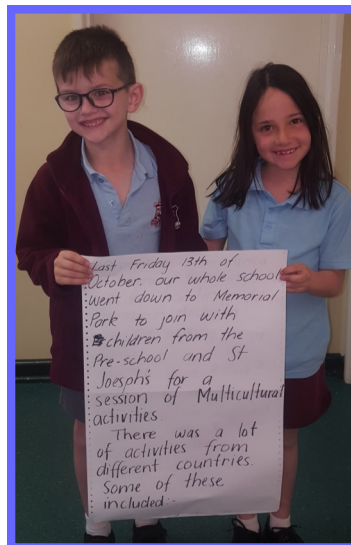 Last Friday 13th of
October, our whole school
went down to Memorial
Park to join with
children from the
Pre-school and St
Joesph's for a
session of Multicultural
activities
There was a lot
of activities from
different countries.
Some of these
included:-